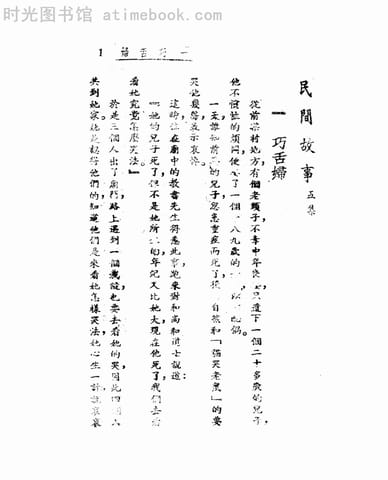 时光图书馆 book1903.com
1 婦舌巧一
民間故事 五集
一 巧舌婦
從前某村地方，有個老頭子，不幸中年喪，只遺下一個二十多歲的兒子，
他不慣的煩悶，便了一個八九歲的
一天，誰知前的兒子忽患重症而死了，自和「貓哭老鼠」的要
哭他幾聲，以示哀悼。
這時，住在廟中的教書先生得悉此事，跑來對和尚和道士說道：
「她的兒子死了，但不是她所的，年紀又比她大，現在他死了，我們去看
看她究竟怎麼哭法。」
於是三個人出了廟門，路上遇到一個，也要去看她的哭，因此四個人
共到她家。她曉得他們的，知道他們是來看她怎樣哭法，她心生一計，哀哀